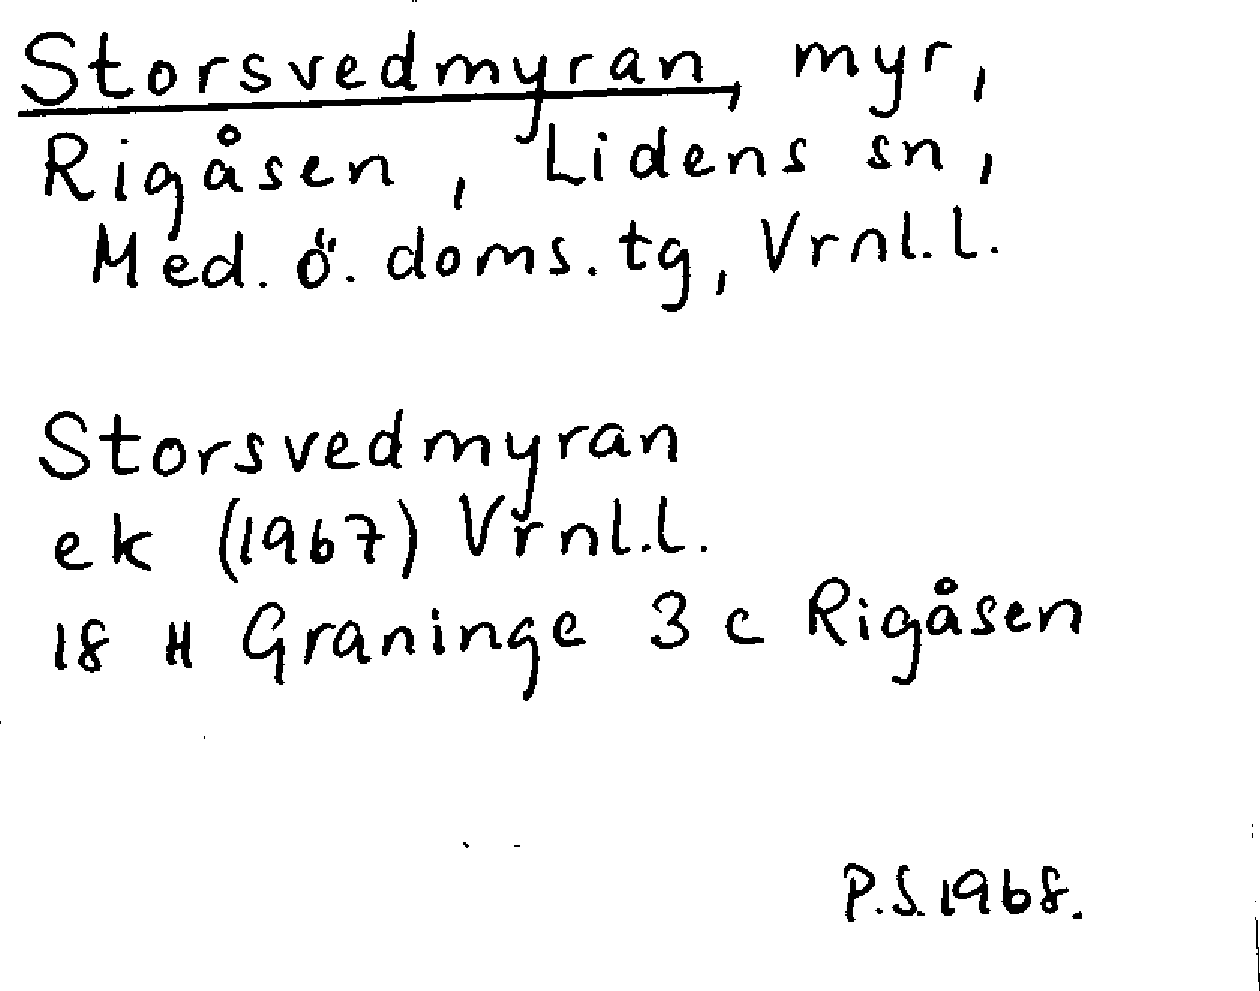 Storsvedmyran, myr,
Rigåsen, Lidens sn,
Med. ö. doms. tg, Vrnl.l.
Storsvedmyran
ek (1967) Vrnl.l.
18 H Graninge 3 c Rigåsen
P.S. 1968.